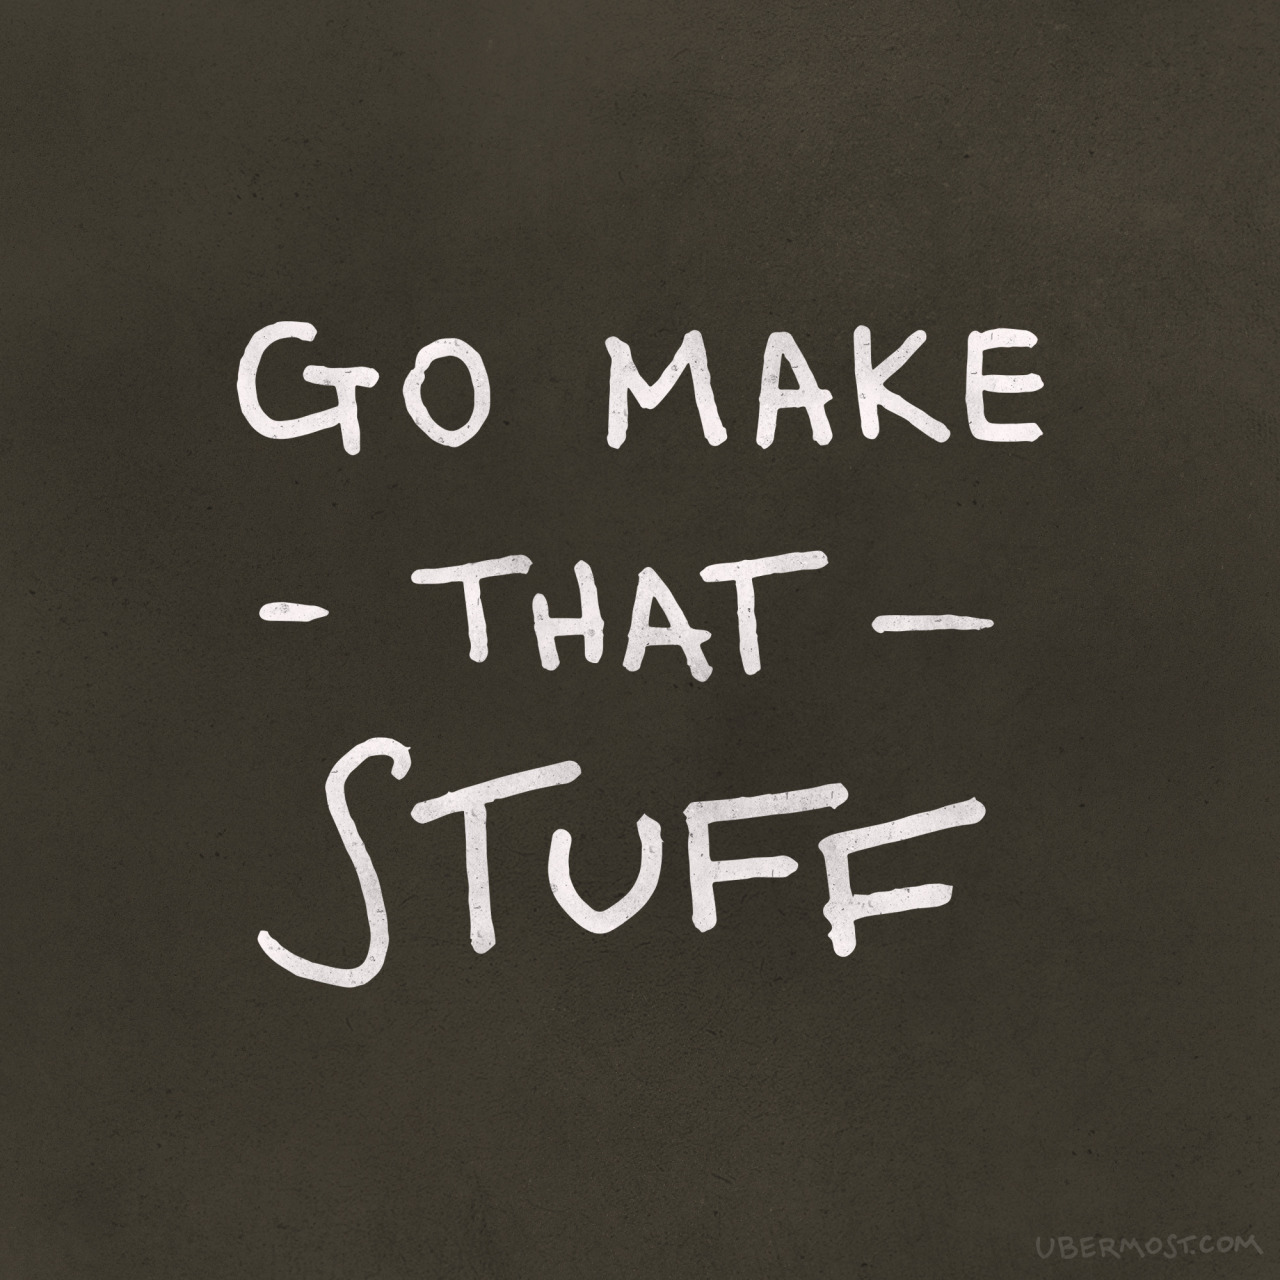 GO MAKE
- THAT —
STUFF
UBERMOST.COM